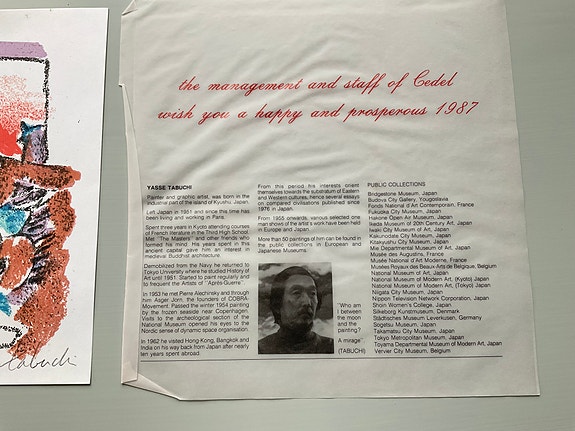 the management and staff of Cedel
wish you a happy and prosperous 1987
YASSE TABUCHI
Painter and graphic artist, was born in the
industrial part of the island of Kyushu, Japan.
Left Japan in 1951 and since this time has
been living and working in Paris.
Spent three years in Kyoto attending courses
of French literature in the Third High School.
Met "The Masters" and other friends who
formed his mind. His years spent in this
ancient capital gave him an interest in
medieval Buddhist architecture.
Demobilized from the Navy he returned to
Tokyo University where he studied History of
Art until 1951. Started to paint regularly and
to frequent the Artists of "Après-Guerre"
In 1953 he met Pierre Alechinsky and through
him Asger Jorn, the founders of COBRA-
Movement. Passed the winter 1954 painting
by the frozen seaside near Copenhagen.
Visits to the archeological section of the
National Museum opened his eyes to the
Nordic sense of dynamic space organisation.
In 1962 he visited Hong-Kong, Bangkok and
India on his way back from Japan after nearly
ten years spent abroad.
From this period his interests orient
themselves towards the substratum of Eastern
and Western cultures, hence several essays
on compared civilisations published since
1976 in Japan.
From 1955 onwards, various selected one
man shows of the artist's work have been held
in Europe and Japan.
More than 50 paintings of him can be found in
the public collections in European and
Japanese Museums.
"Who am
I between
the moon
and the
painting?
A mirage"
(TABUCHI)
PUBLIC COLLECTIONS
Bridgestone Museum, Japan
Budova City Gallery, Yougoslavia
Fonds National d'Art Contemporain, France
Fukuoka City Museum, Japan
Hakone Open Air Museum, Japan
Ikeda Museum of 20th Century Art, Japan
Iwaki City Museum of Art, Japan
Kakunodate City Museum, Japan
Kitakyushu City Museum, Japan
Mie Departmental Museum of Art, Japan
Musée des Augustins, France
Musée National d'Art Moderne, France
Musées Royaux des Beaux-Arts de Belgique, Belgium
National Museum of Art, Japan
National Museum of Modern Art, (Kyoto) Japan
National Museum of Modern Art, (Tokyo) Japan
Niigata City Museum, Japan
Nippon Television Network Corporation, Japan
Shoin Women's College, Japan
Silkeborg Kunstmuseum, Denmark
Städtisches Museum Leverkusen, Germany
Sogetsu Museum, Japan
Takamatsu City Museum, Japan
Tokyo Metropolitan Museum, Japan
Toyama Departmental Museum of Modern Art, Japan
Vervier City Museum, Belgium
Tabuchi